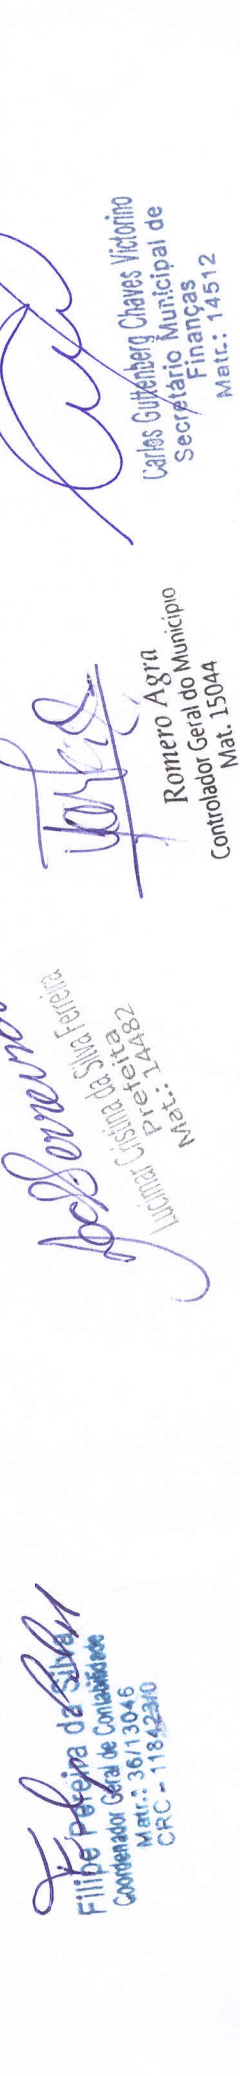 Filipe Pereira da Silva
Coordenador Geral de Contabilidade
Matr.: 36/13046
CRC -
Lucimar Cristina da Silva Ferreira
Prefeita
Mat.: 14482
Romero Agra
Controlador Geral do Município
Mat. 15044
Carlos Guttenberg Chaves Victorino
Secretário Municipal de
Finanças
Matr.: 14512